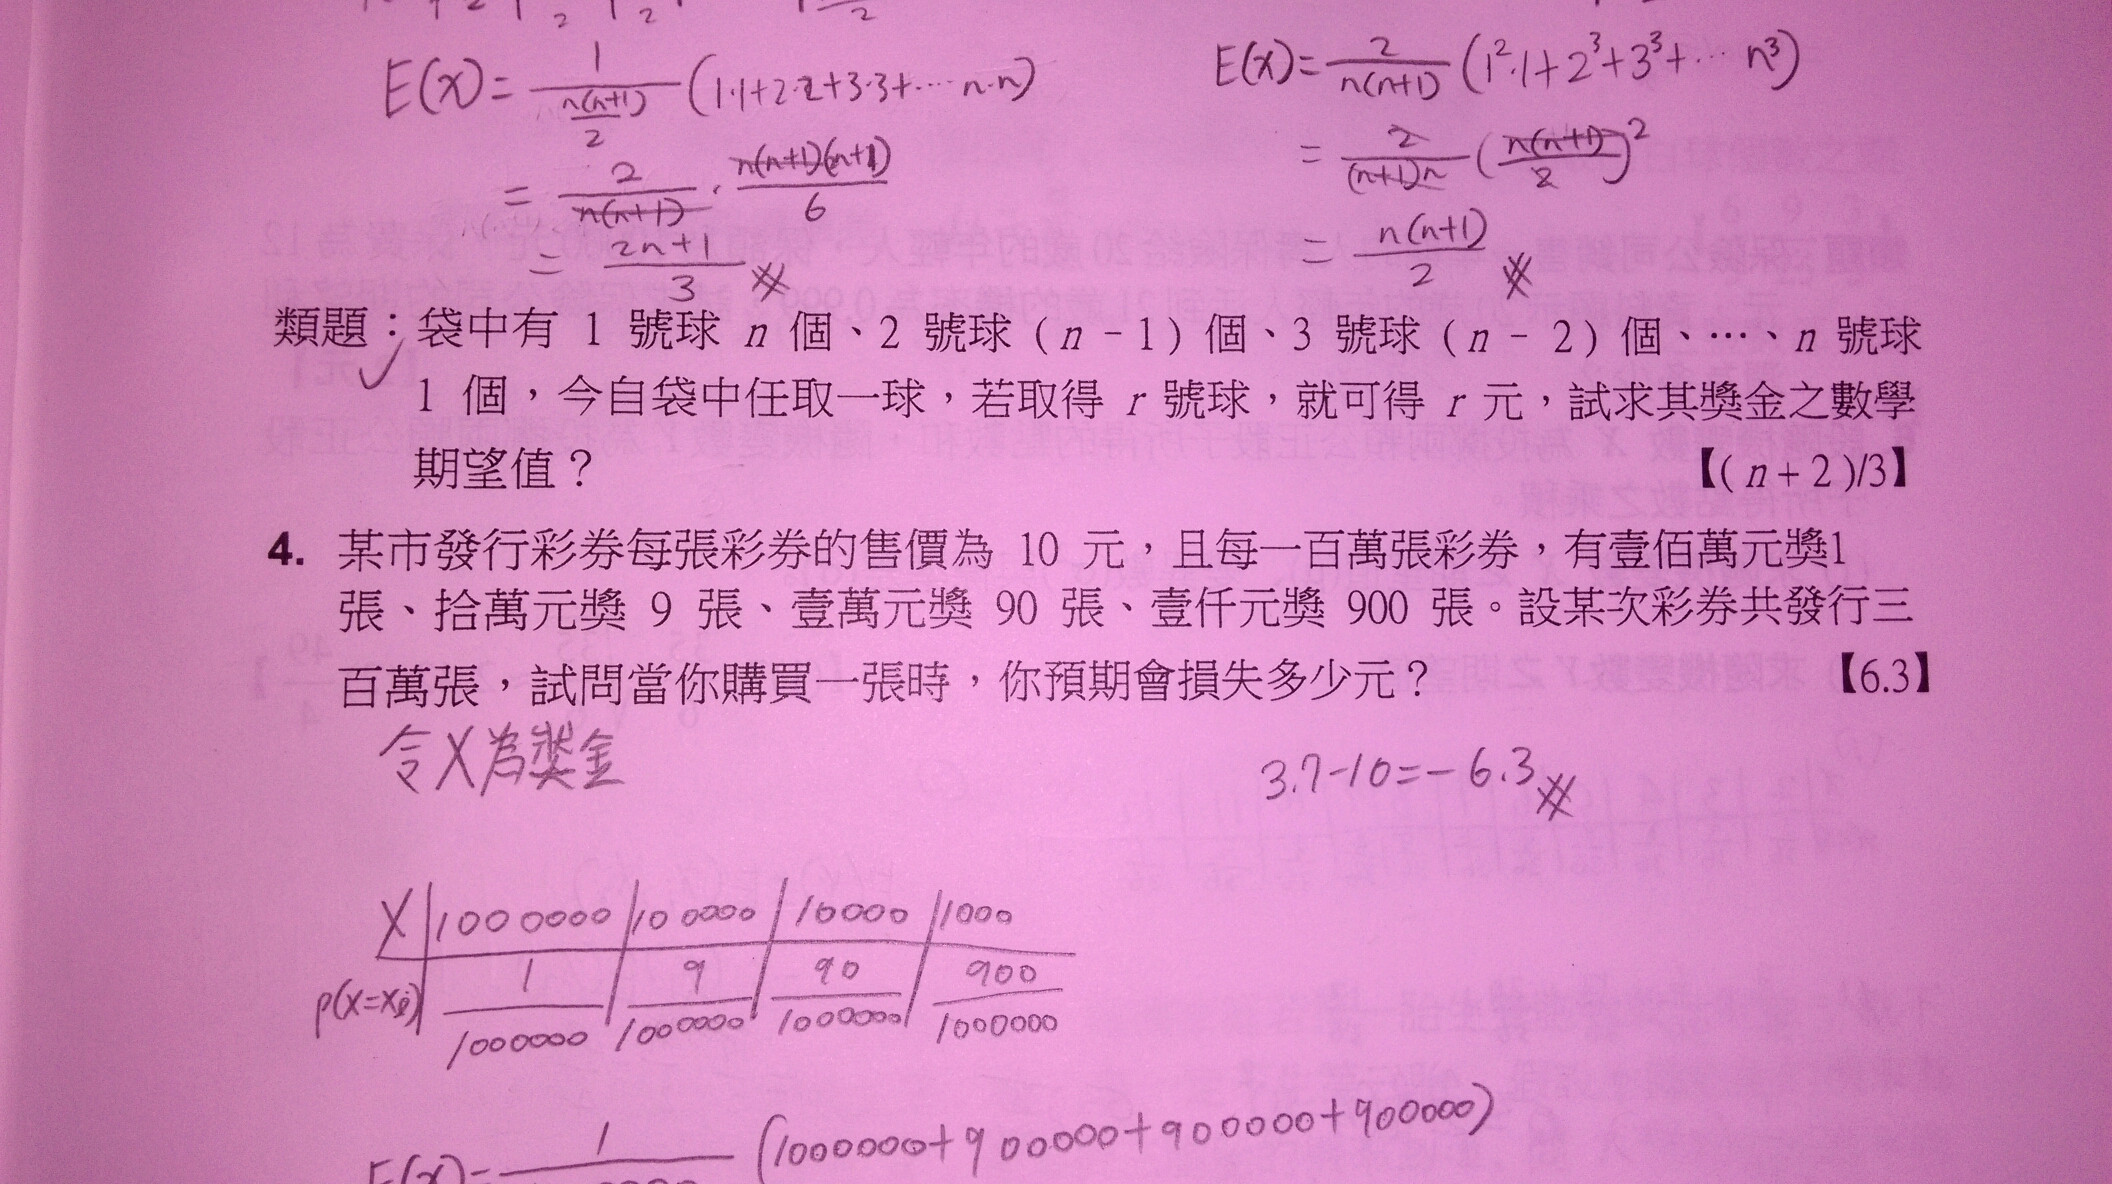 E(X)=\frac{1}{\frac{n(n+1)}{2}}(1·1+2·2+3·3+⋯n·n)
=\frac{2}{n(n+1)}·\frac{n(n+1)(n+1)}{6}
=\frac{2n+1}{3}
E(X)=\frac{2}{n(n+1)}(1²·1+2³+3³+⋯n³)
=\frac{2}{(n+1)n}(\frac{n(n+1)}{2})²
=\frac{n(n+1)}{2}
類題：袋中有 1 號球 n 個、2 號球（n－1）個、3 號球（n－2）個、…、n 號球
1 個，今自袋中任取一球，若取得 r 號球，就可得 r 元，試求其獎金之數學
期望值？ 【(n+2)/3】
4. 某市發行彩券每張彩券的售價為 10 元，且每一百萬張彩券，有壹佰萬元獎1
張、拾萬元獎 9 張、壹萬元獎 90 張、壹仟元獎 900 張。設某次彩券共發行三
百萬張，試問當你購買一張時，你預期會損失多少元？ 【6.3】
令X為獎金
3.7-10=-6.3
X 1000000 100000 10000 1000
P(X=xi) \frac{1}{1000000} \frac{9}{1000000} \frac{90}{1000000} \frac{900}{1000000}
E(X)=\frac{1}{}(1000000+900000+900000+900000)